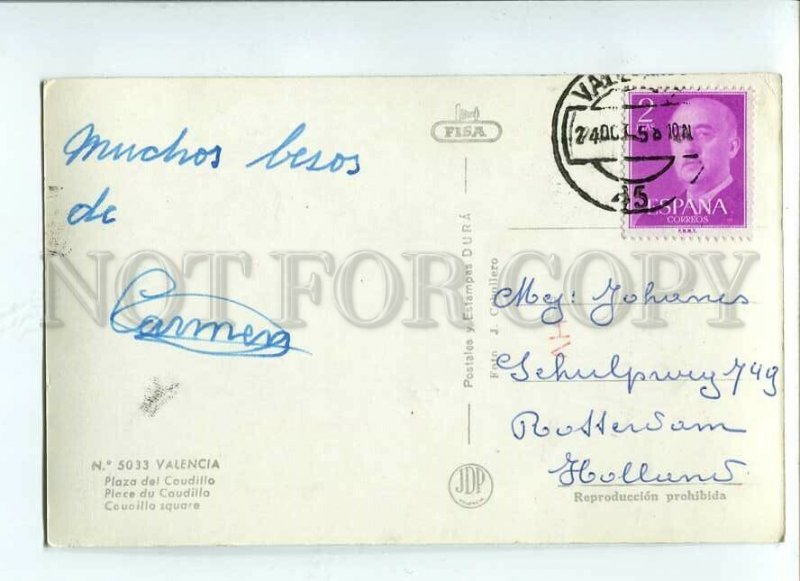 Muchos besos
de
Carmen
N.° 5033 VALENCIA
Plaza del Caudillo
Place du Caudillo
Caudillo square
FISA
Postales y Estampas DURÁ
Foto J. Caballero
JDP
24 OCT 58 10N
45
2
PTAS
ESPAÑA
CORREOS
F.N.M.T.
Mej: Johanes
Schulpweg 749
Rotterdam
Holland
Reproducción prohibida
NOT FOR COPY